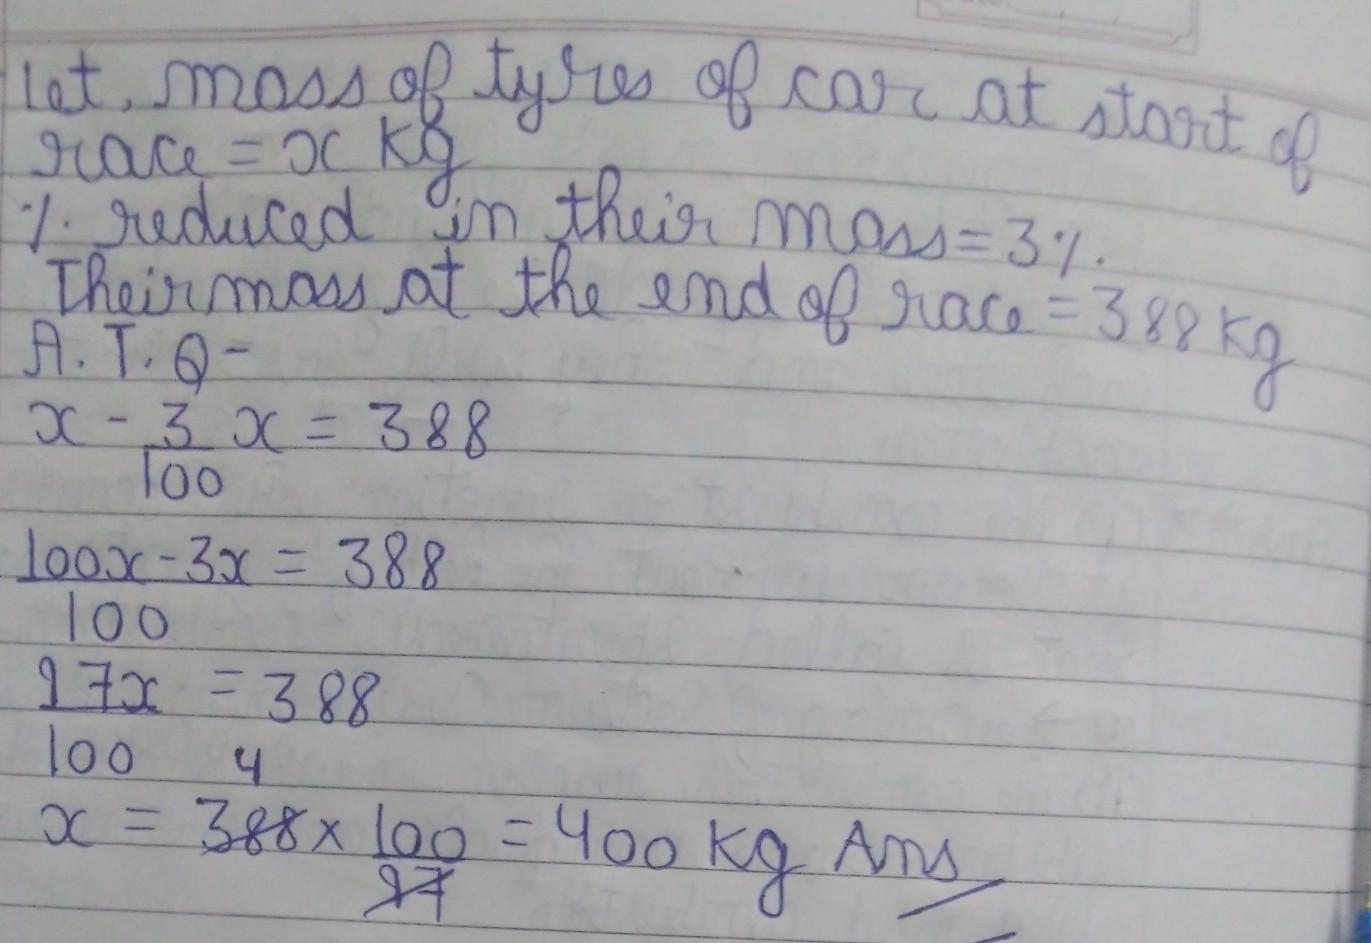 Let, mass of tyres of car at start of
race = x Kg
% reduced in their mass = 3%.
Their mass at the end of race = 388 Kg
A.T.Q -
x - 3/100 x = 388
100x - 3x / 100 = 388
97x / 100 = 388
4
x = 388 x 100 / 97 = 400 Kg Ans